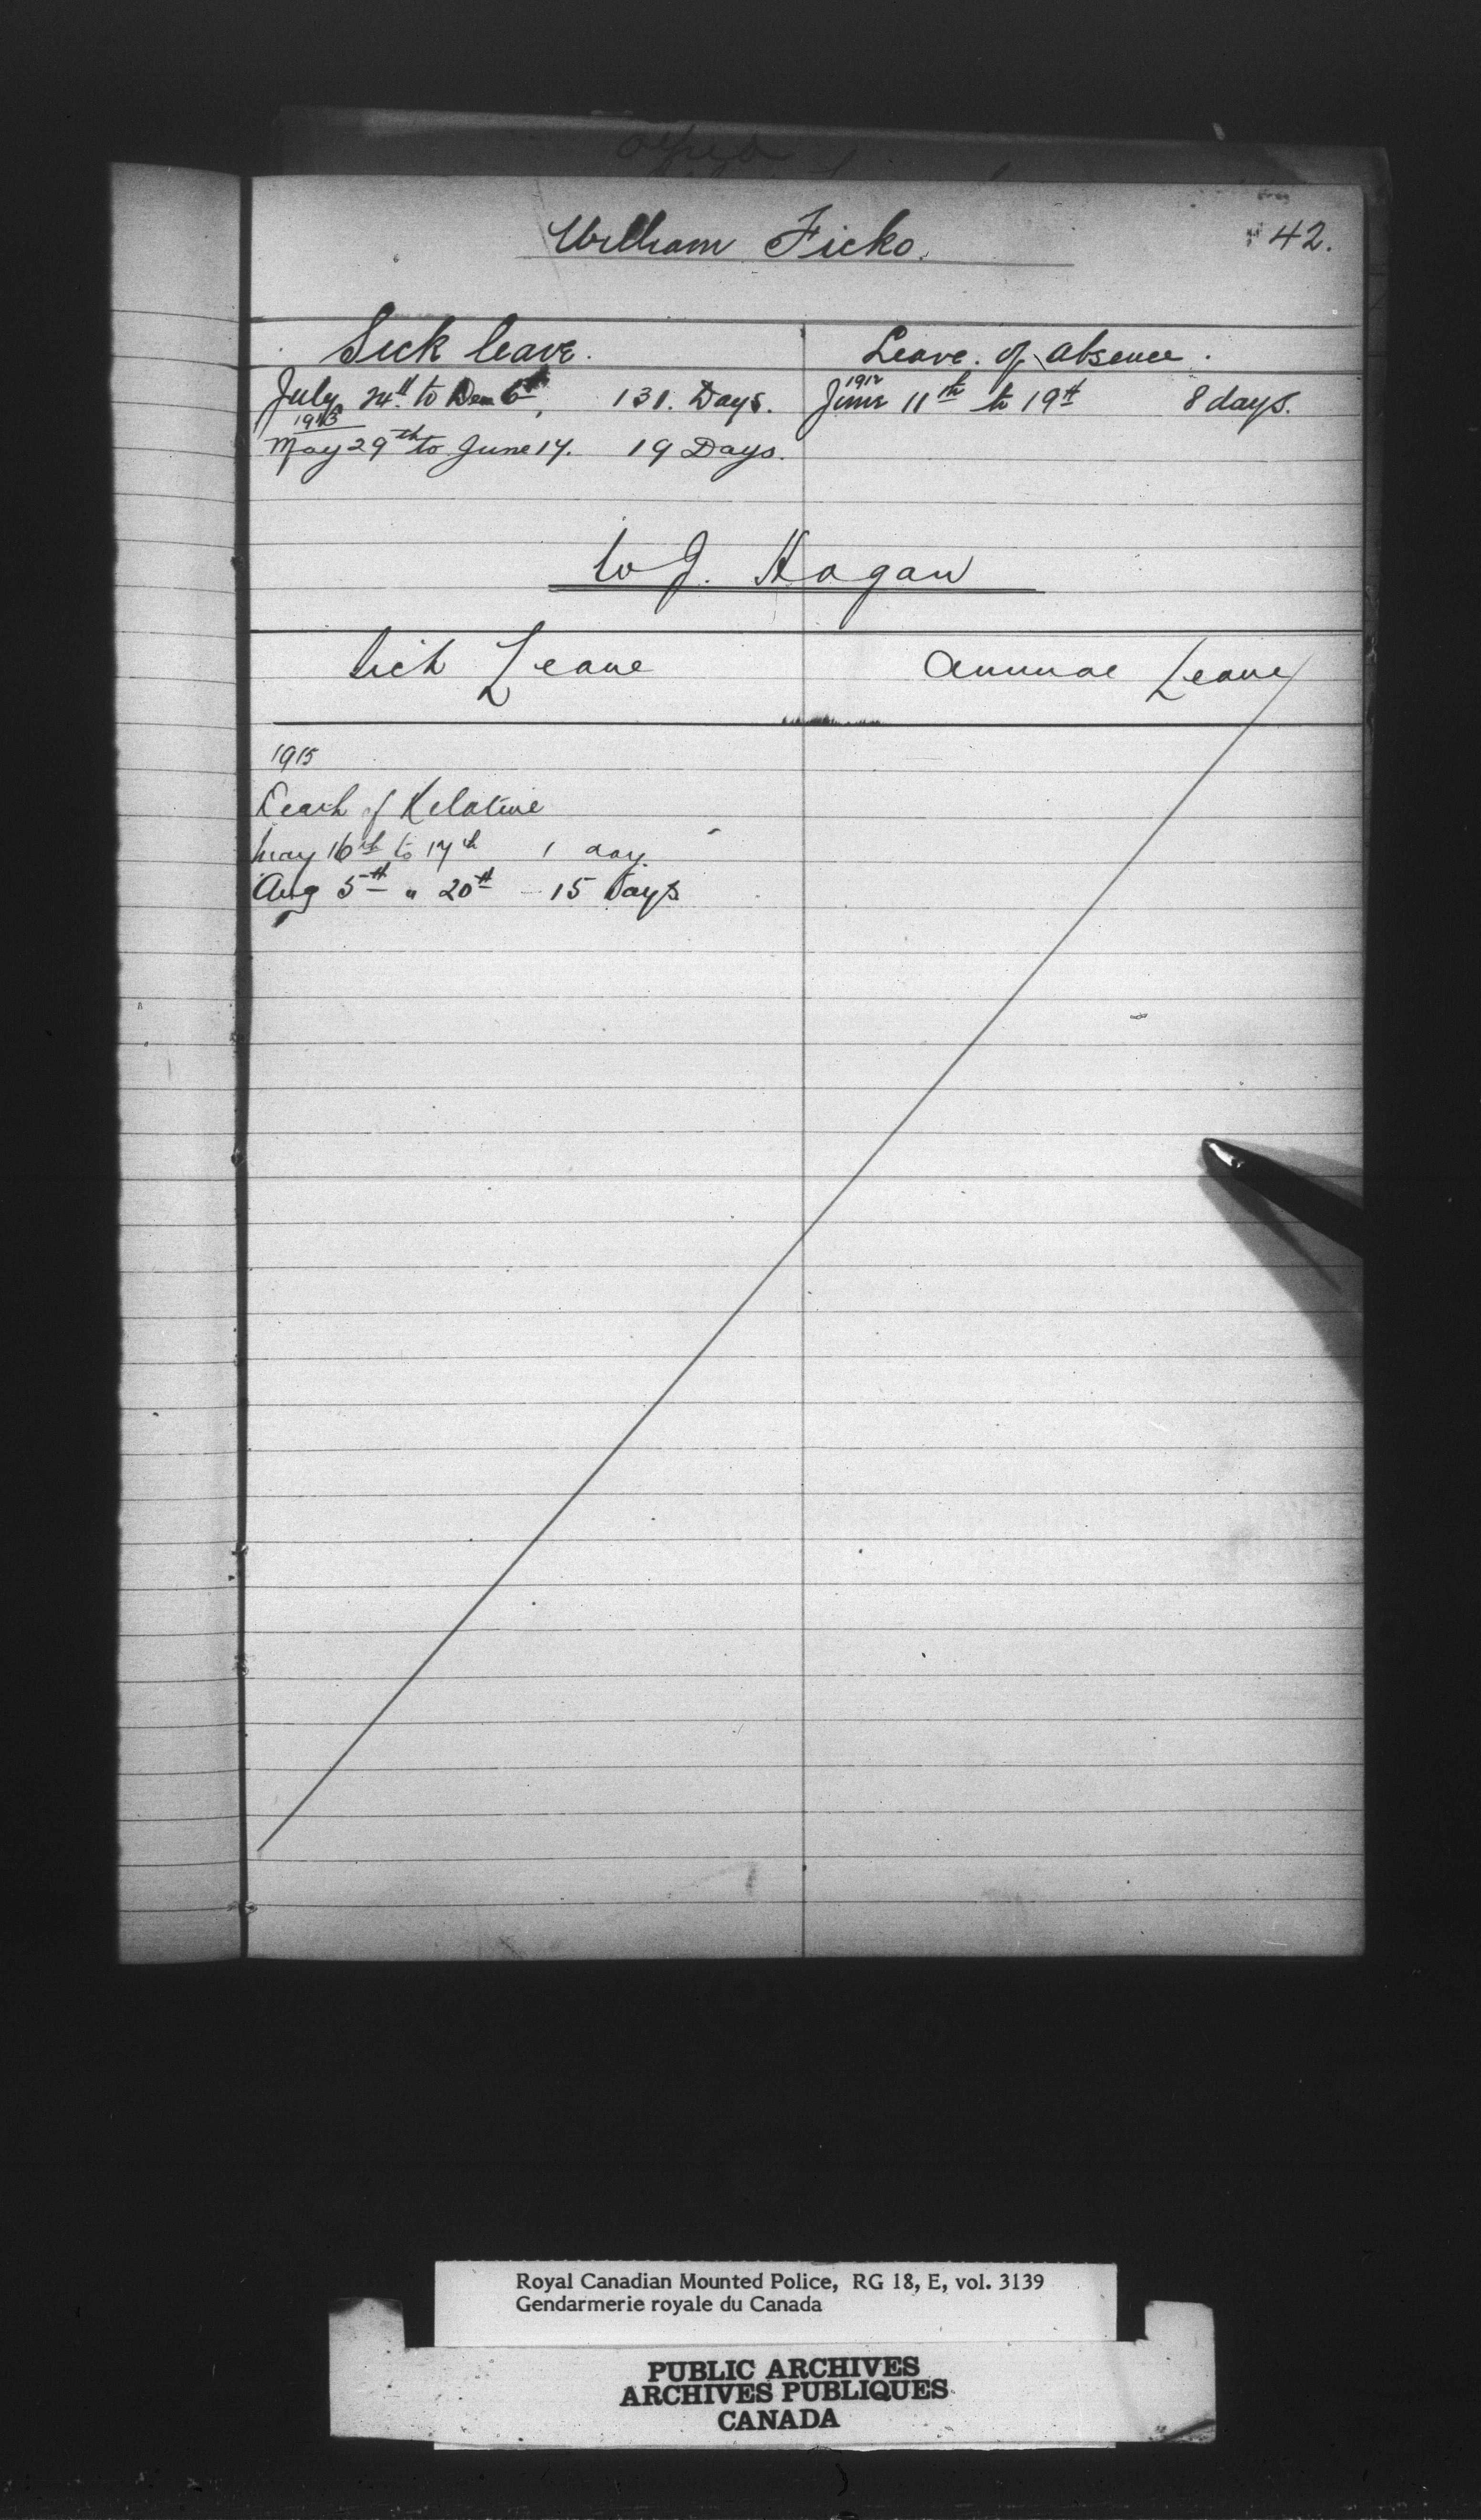 William Ficko. 42.
Sick leave. Leave. of absence.
July 24th to Dec 6th, 131. Days. 1912 June 11th to 19th 8 days.
1913
May 29th to June 17. 19 Days.
W J. Hogan
Sick Leave Annual Leave
1915
Death of Relative
May 16th to 17th 1 day.
Aug 5th " 20th - 15 Days
Royal Canadian Mounted Police, RG 18, E, vol. 3139
Gendarmerie royale du Canada
PUBLIC ARCHIVES
ARCHIVES PUBLIQUES
CANADA